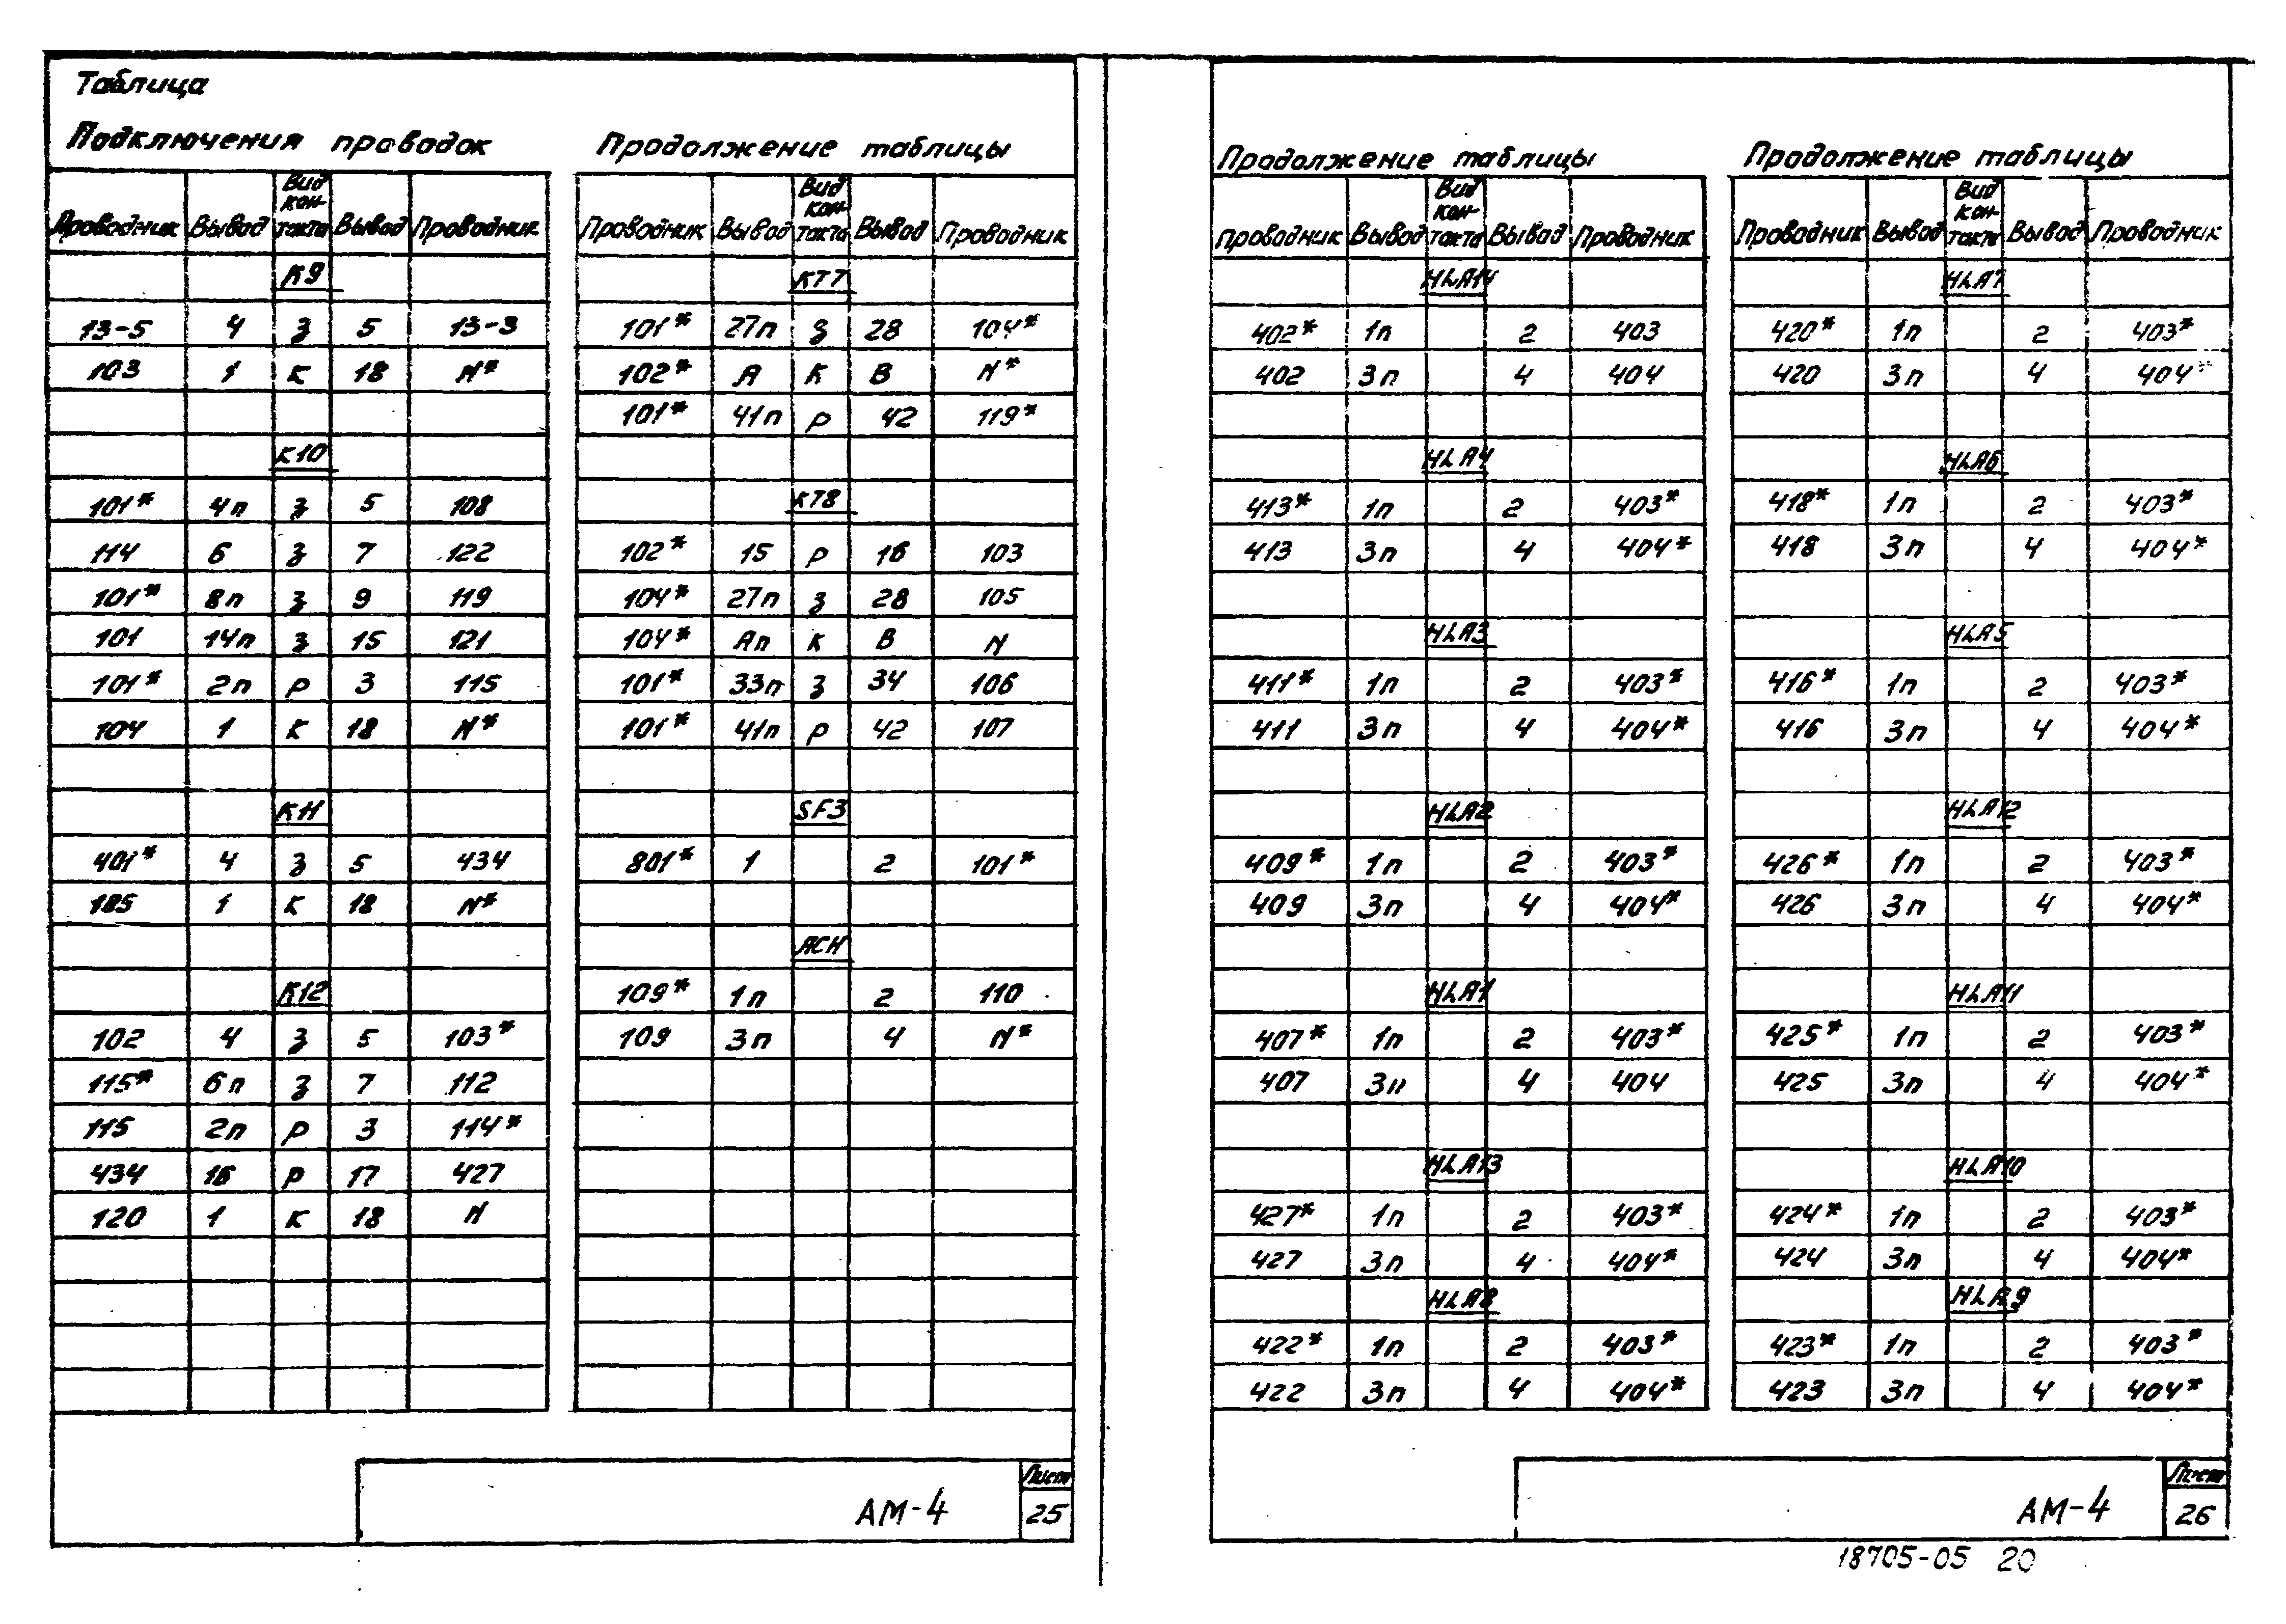 Таблица
Подключения проводок
Проводник Вывод Вид кон- такта Вывод Проводник
К9
13-5 4 З 5 13-3
103 1 К 18 N*
К10
101* 4п З 5 108
114 6 З 7 122
101* 8п З 9 119
101 14п З 15 121
101* 2п Р 3 115
104 1 К 18 N*
К11
401* 4 З 5 434
105 1 К 18 N*
К12
102 4 З 5 103*
115* 6п З 7 112
115 2п Р 3 114*
434 16 Р 17 427
120 1 К 18 N
Продолжение таблицы
Проводник Вывод Вид кон- такта Вывод Проводник
КТ7
101* 27п З 28 104*
102* А К В N*
101* 41п Р 42 119*
КТ8
102* 15 Р 16 103
104* 27п З 28 105
104* Ап К В N
101* 33п З 34 106
101* 41п Р 42 107
SF3
801* 1 2 101*
АСН
109* 1п 2 110
109 3п 4 N*
АМ-4
Лист
25
Продолжение таблицы
Проводник Вывод Вид кон- такта Вывод Проводник
HLA14
402* 1п 2 403
402 3п 4 404
HLA4
413* 1п 2 403*
413 3п 4 404*
HLA3
411* 1п 2 403*
411 3п 4 404*
HLA2
409* 1п 2 403*
409 3п 4 404*
HLA1
407* 1п 2 403*
407 3п 4 404
HLA13
427* 1п 2 403*
427 3п 4 404*
HLA8
422* 1п 2 403*
422 3п 4 404*
Продолжение таблицы
Проводник Вывод Вид кон- такта Вывод Проводник
HLA7
420* 1п 2 403*
420 3п 4 404*
HLA6
418* 1п 2 403*
418 3п 4 404*
HLA5
416* 1п 2 403*
416 3п 4 404*
HLA12
426* 1п 2 403*
426 3п 4 404*
HLA11
425* 1п 2 403*
425 3п 4 404*
HLA10
424* 1п 2 403*
424 3п 4 404*
HLA9
423* 1п 2 403*
423 3п 4 404*
АМ-4
Лист
26
18705-05 20